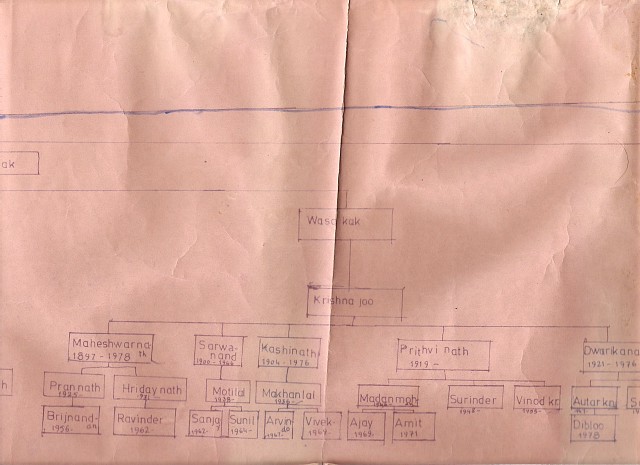 ak
Wasa kak
Krishna joo
Maheshwarna
th
1897-1978
Sarwa-
nand
Kashinath
1904-1976
Prithvi nath
1919-
Dwarikana
1921-1976
h
Prannath
1925-
Hridaynath
Motilal
Makhanlal
Madanmoh
Surinder
Vinod kr
Autar kr
Brijnand-
an
1956.
Ravinder
1962.
Sanja
1962-
Sunil
1964-
Arvin
Vivek-
1967.
Ajay
1969.
Amit
1971
Dibloo
1978